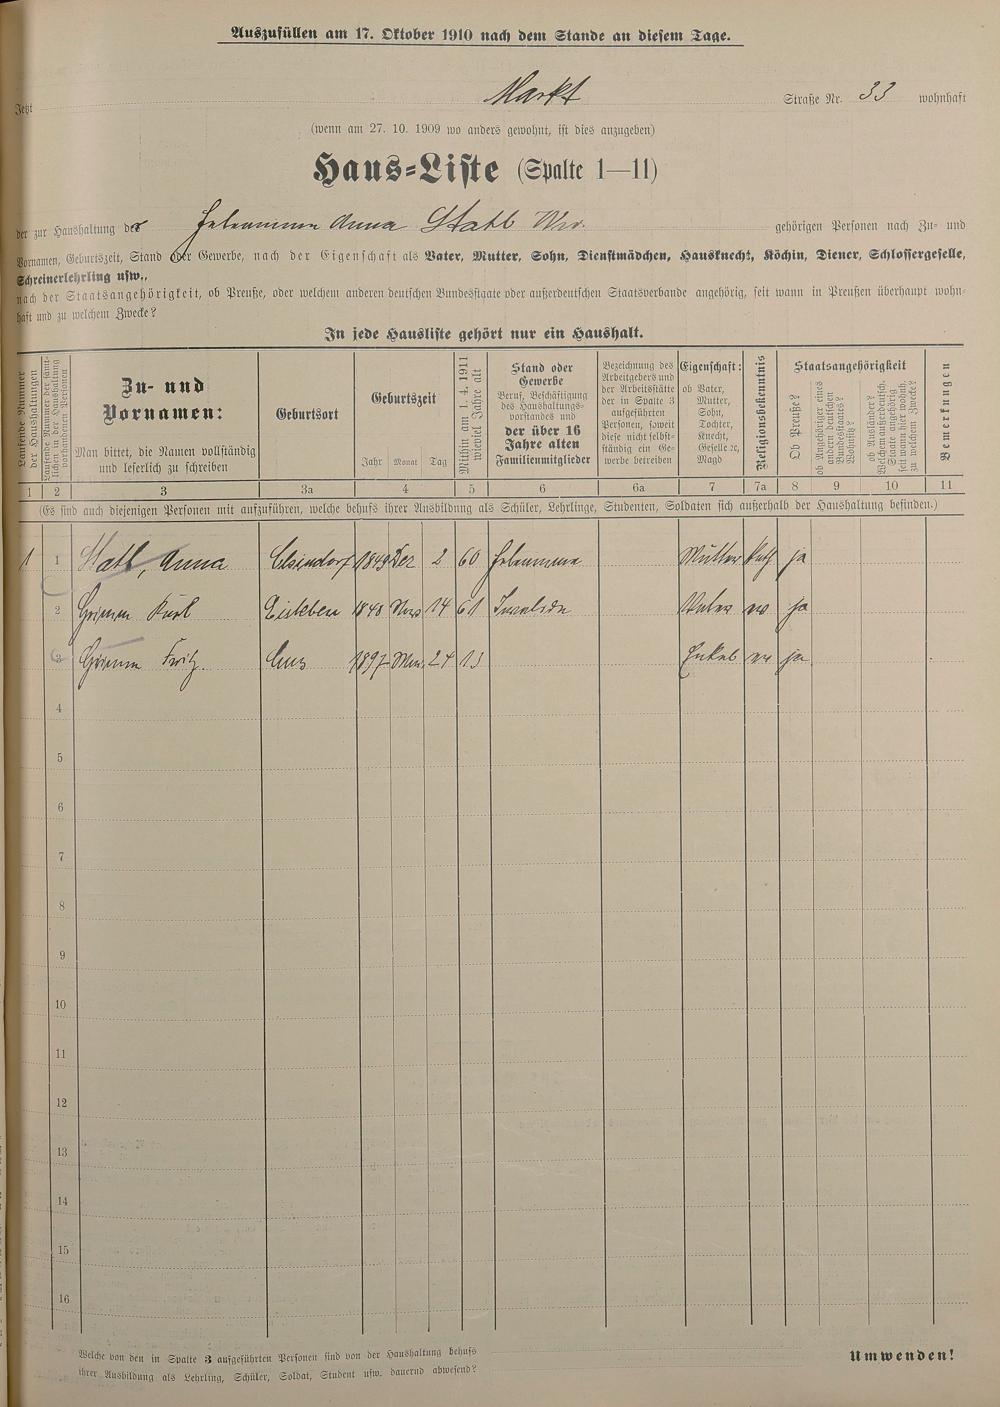 Auszufüllen am 17. Oktober 1910 nach dem Stande an diesem Tage.
Jetzt Markt Straße Nr. 33 wohnhaft
(wenn am 27. 10. 1909 wo anders gewohnt, ist dies anzugeben)
Haus-Liste (Spalte 1—11)
der zur Haushaltung der Hebamme Anna Statl Wwe. gehörigen Personen nach Zu- und
Vornamen, Geburtszeit, Stand oder Gewerbe, nach der Eigenschaft als Vater, Mutter, Sohn, Dienstmädchen, Hausknecht, Köchin, Diener, Schlossergeselle,
Schreinerlehrling usw.,
nach der Staatsangehörigkeit, ob Preuße, oder welchem anderen deutschen Bundesstaate oder außerdeutschen Staatsverbande angehörig, seit wann in Preußen überhaupt wohn-
haft und zu welchem Zwecke?
In jede Hausliste gehört nur ein Haushalt.
Laufende Nummer
der Haushaltungen
Laufende Nummer der sämt-
lichen in der Haushaltung
vorhandenen Personen
Zu- und
Vornamen:
Man bittet, die Namen vollständig
und leserlich zu schreiben
Geburtsort
Geburtszeit
Jahr Monat Tag
Mithin am 1. 4. 1911
wieviel Jahre alt
Stand oder
Gewerbe
Beruf, Beschäftigung
des Haushaltungs-
vorstandes und
der über 16
Jahre alten
Familienmitglieder
Bezeichnung des
Arbeitgebers und
der Arbeitsstätte
der in Spalte 3
aufgeführten
Personen, soweit
diese nicht selbst-
ständig ein Ge-
werbe betreiben
Eigenschaft:
ob Vater,
Mutter,
Sohn,
Tochter,
Knecht,
Geselle ec,
Magd
Religionsbekenntnis
Staatsangehörigkeit
Ob Preuße?
ob Angehöriger eines
andern deutschen
Bundesstaates?
Wohnsitz?
ob Ausländer?
Welchem außerdeutsch.
Staate angehörig
seit wann hier wohnh.
zu welchem Zwecke?
Bemerkungen
1 2 3 3a 4 5 6 6a 7 7a 8 9 10 11
(Es sind auch diejenigen Personen mit aufzuführen, welche behufs ihrer Ausbildung als Schüler, Lehrlinge, Studenten, Soldaten sich außerhalb der Haushaltung befinden.)
1 1 Statl, Anna Elsindorf 1849 Dez 2 60 Hebamme Mutter Kath ja
2 Grimm Karl Eisleben 1848 14 61 Invalide Vater ev ja
3 Grimm Fritz 1897 24 13 Enkel ev ja
4
5
6
7
8
9
10
11
12
13
14
15
16
Welche von den in Spalte 3 aufgeführten Personen sind von der Haushaltung behufs
ihrer Ausbildung als Lehrling, Schüler, Soldat, Student usw. dauernd abwesend?
Umwenden!